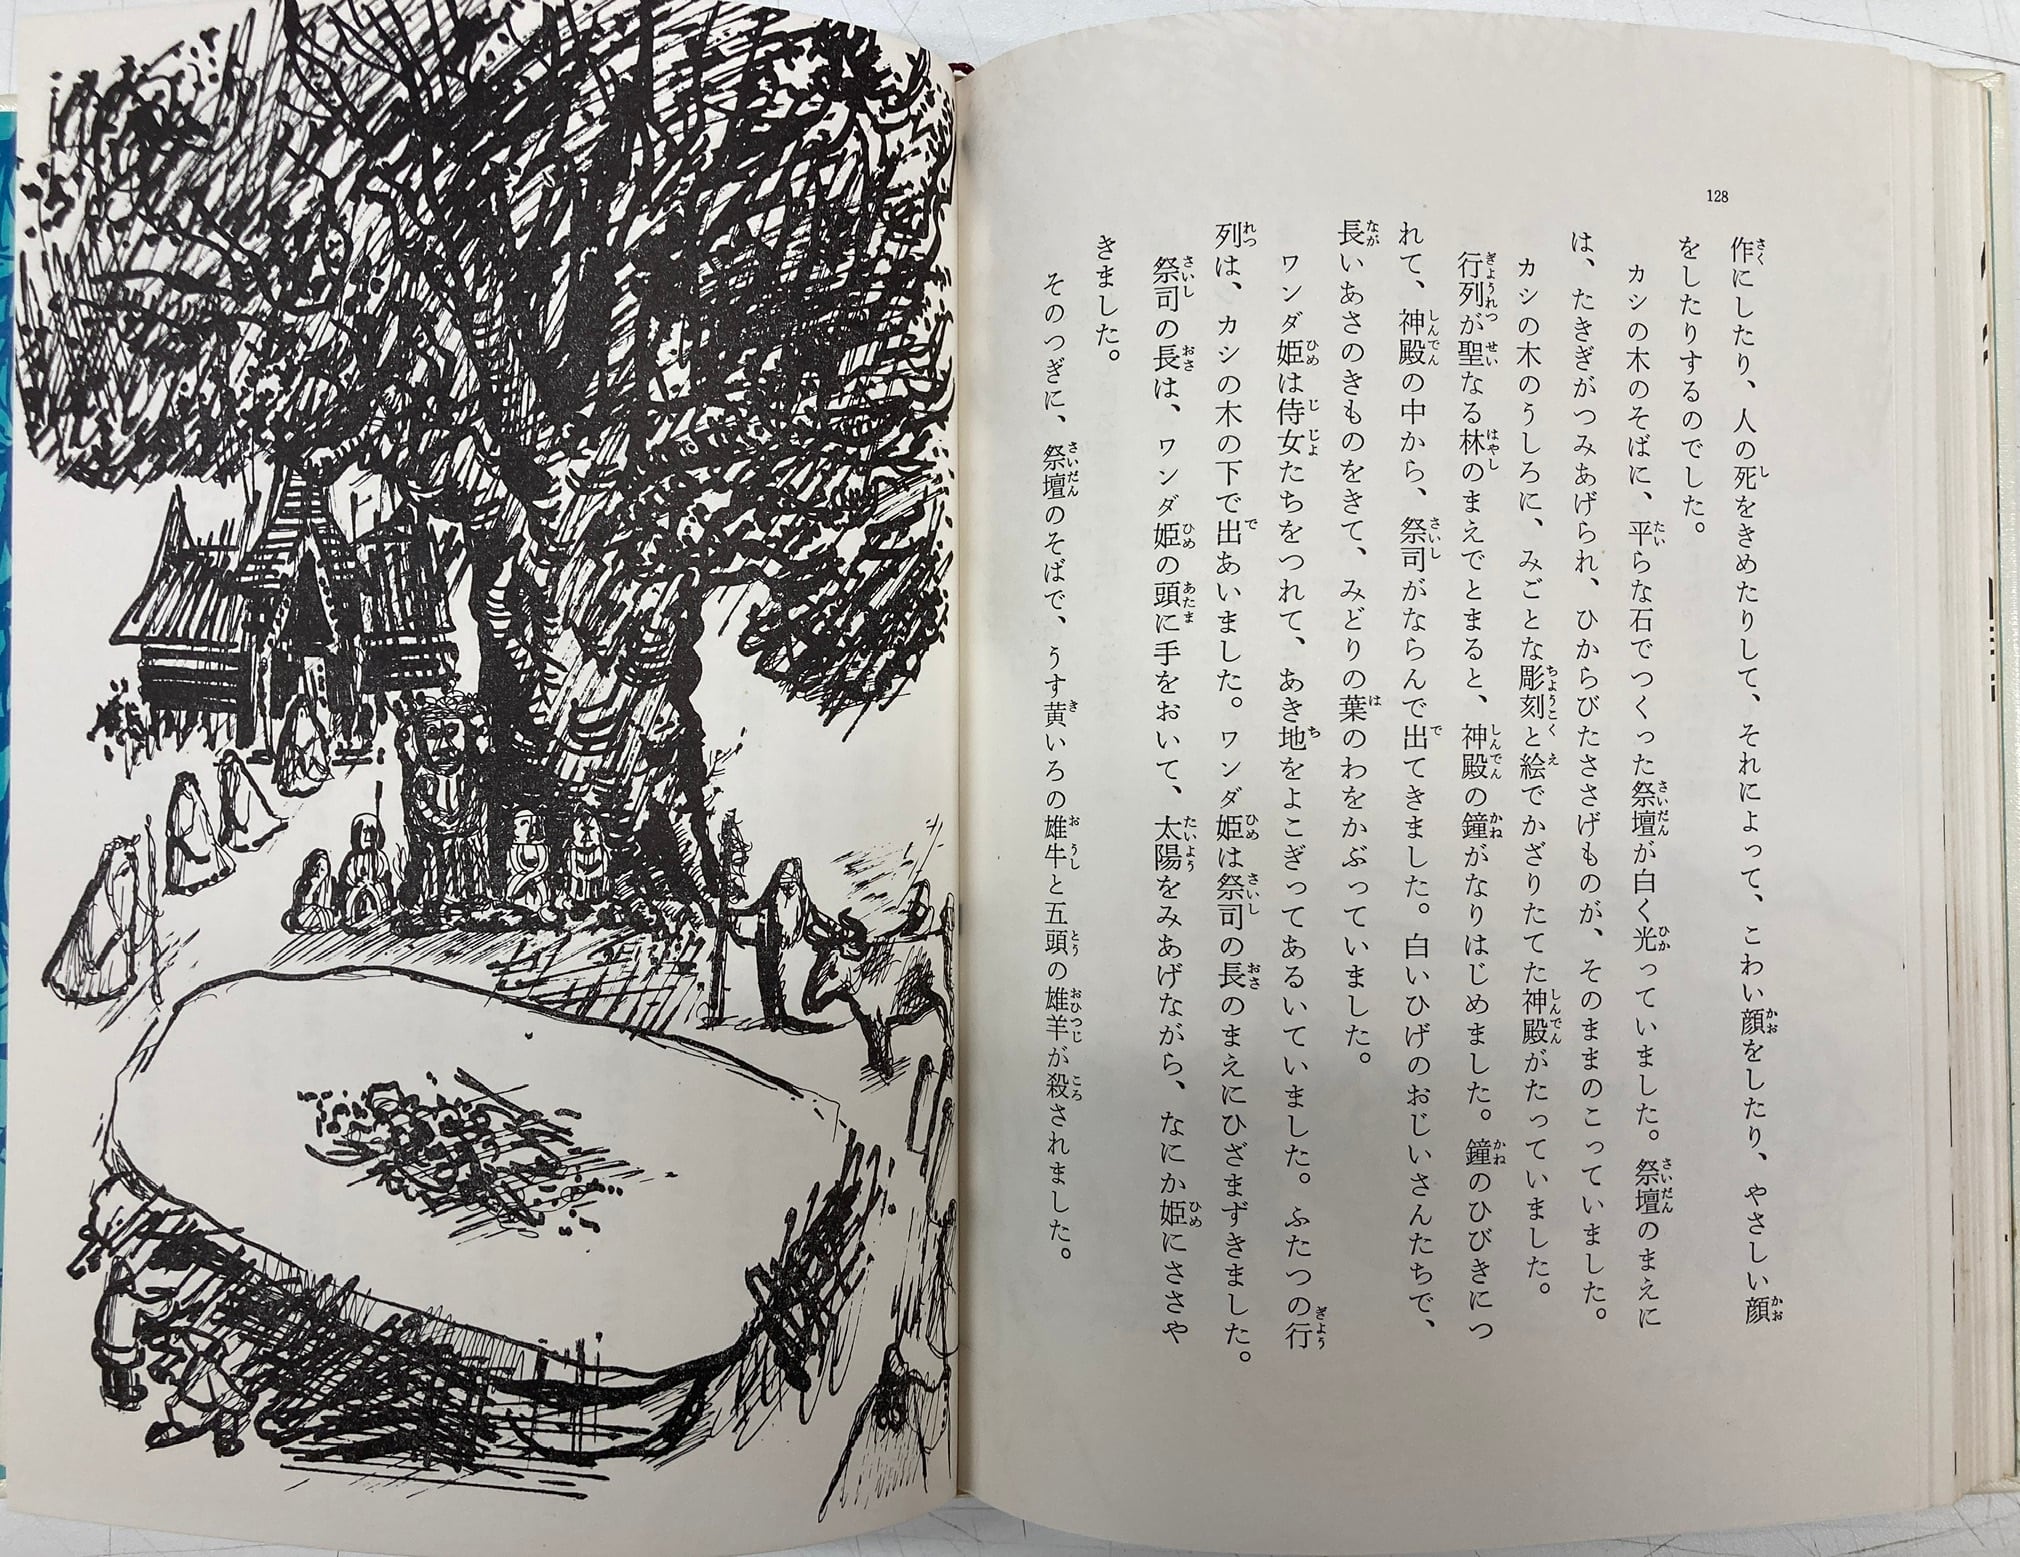 128
作にしたり、人の死をきめたりして、それによって、こわい顔をしたり、やさしい顔
をしたりするのでした。
カシの木のそばに、平らな石でつくった祭壇が白く光っていました。祭壇のまえに
は、たきぎがつみあげられ、ひからびたささげものが、そのままのこっていました。
カシの木のうしろに、みごとな彫刻と絵でかざりたてた神殿がたっていました。
行列が聖なる林のまえでとまると、神殿の鐘がなりはじめました。鐘のひびきにつ
れて、神殿の中から、祭司がならんで出てきました。白いひげのおじいさんたちで、
長いあさのきものをきて、みどりの葉のわをかぶっていました。
ワンダ姫は侍女たちをつれて、あき地をよこぎってあるいていました。ふたつの行
列は、カシの木の下で出あいました。ワンダ姫は祭司の長のまえにひざまずきました。
祭司の長は、ワンダ姫の頭に手をおいて、太陽をみあげながら、なにか姫にささや
きました。
そのつぎに、祭壇のそばで、うす黄いろの雄牛と五頭の雄羊が殺されました。